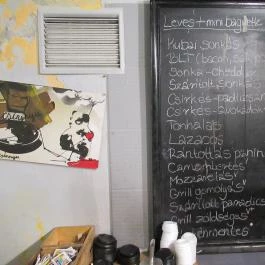 Leves + mini baguette
Kubai sonkás
BLT (bacon, sal
Sonka - chedd
Szárított sonkás
Csirkés - padlizsán
Csirkés - avokádó
Tonhalas
Lazacos
Rántottás panini
Camembertes
Mozzarellás
Grill gomolyás
Szárított paradics
Grill zöldséges
mentes